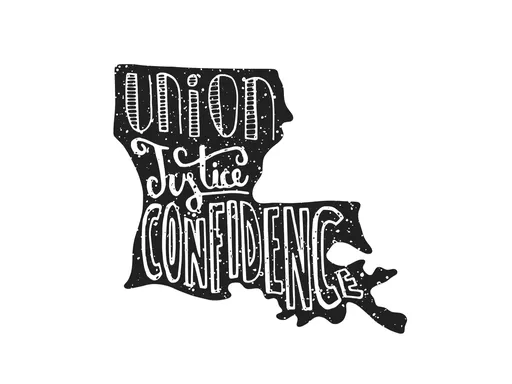 UNION
Justice
CONFIDENCE